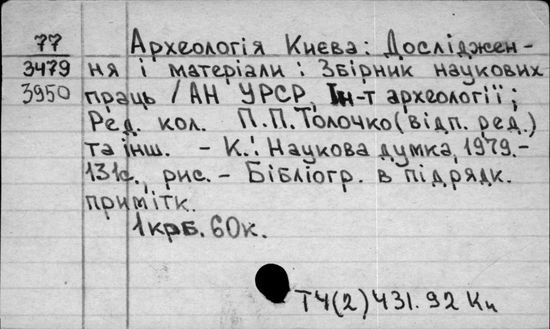 77 Археологія Києва: Дослiджен-
3479 ня і матеріали: Збірник наукових
3950 праць / АН УРСР, Ін-т археології;
Ред. кол. П.П.Толочко (відп. ред.)
та інш. - К.: Наукова думка, 1979.-
131с., рис. - Бібліогр. в підрядк.
примітк.
1 крб. 60к.
Т4(2)431.92 Ки